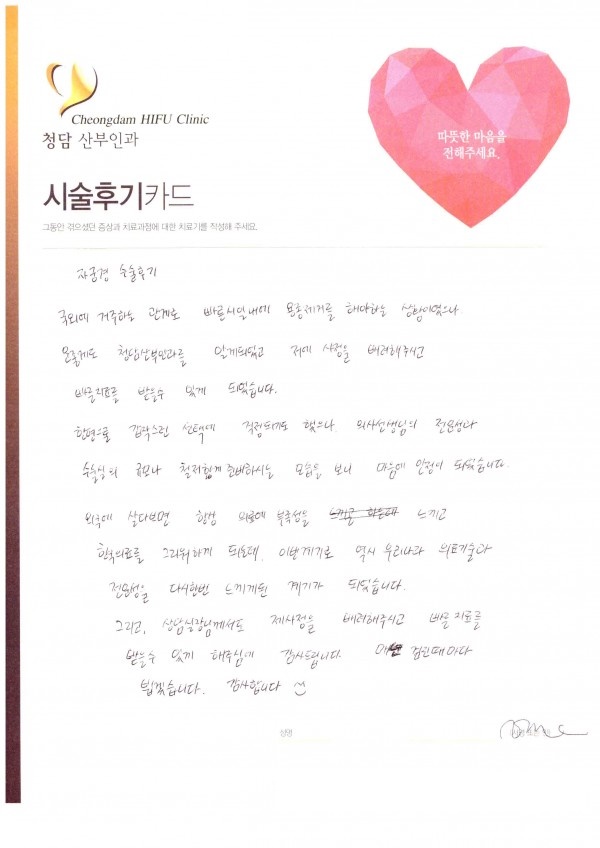 Cheongdam HIFU Clinic
청담 산부인과
따뜻한 마음을
전해주세요.
시술후기카드
그동안 겪으셨던 증상과 치료과정에 대한 치료기를 작성해 주세요.
자궁경 수술후기
국외에 거주하는 관계로 빠른시일내에 용종제거를 해야하는 상황이였으나
운좋게도 청담산부인과를 알게되었고 저에 사정을 배려해주시고
빠른치료를 받을수 있게 되었습니다.
한편으로 갑작스런 선택에 걱정되기도 했으나. 의사선생님의 전문성과
수술실의 규모나 철저하게 준비하시는 모습을 보니 마음에 안정이 되었습니다.
외국에 살다보면 항상 의료에 부족성을 느끼고
한국의료를 그리워하게 되는데. 이번계기로 역시 우리나라 의료기술과
전문성을 다시한번 느끼게된 계기가 되었습니다.
그리고, 상담실장님께서도 제사정을 배려해주시고 빠른 치료를
받을수 있게 해주심에 감사드립니다. 검진때마다
뵙겠습니다. 감사합니다
성명